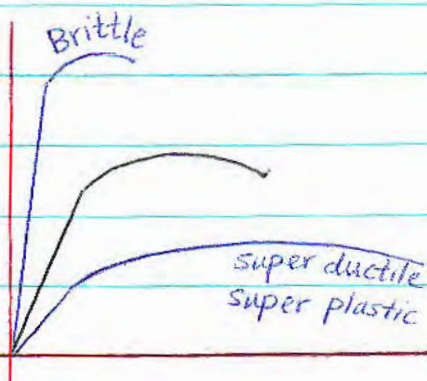 Brittle
super ductile
super plastic